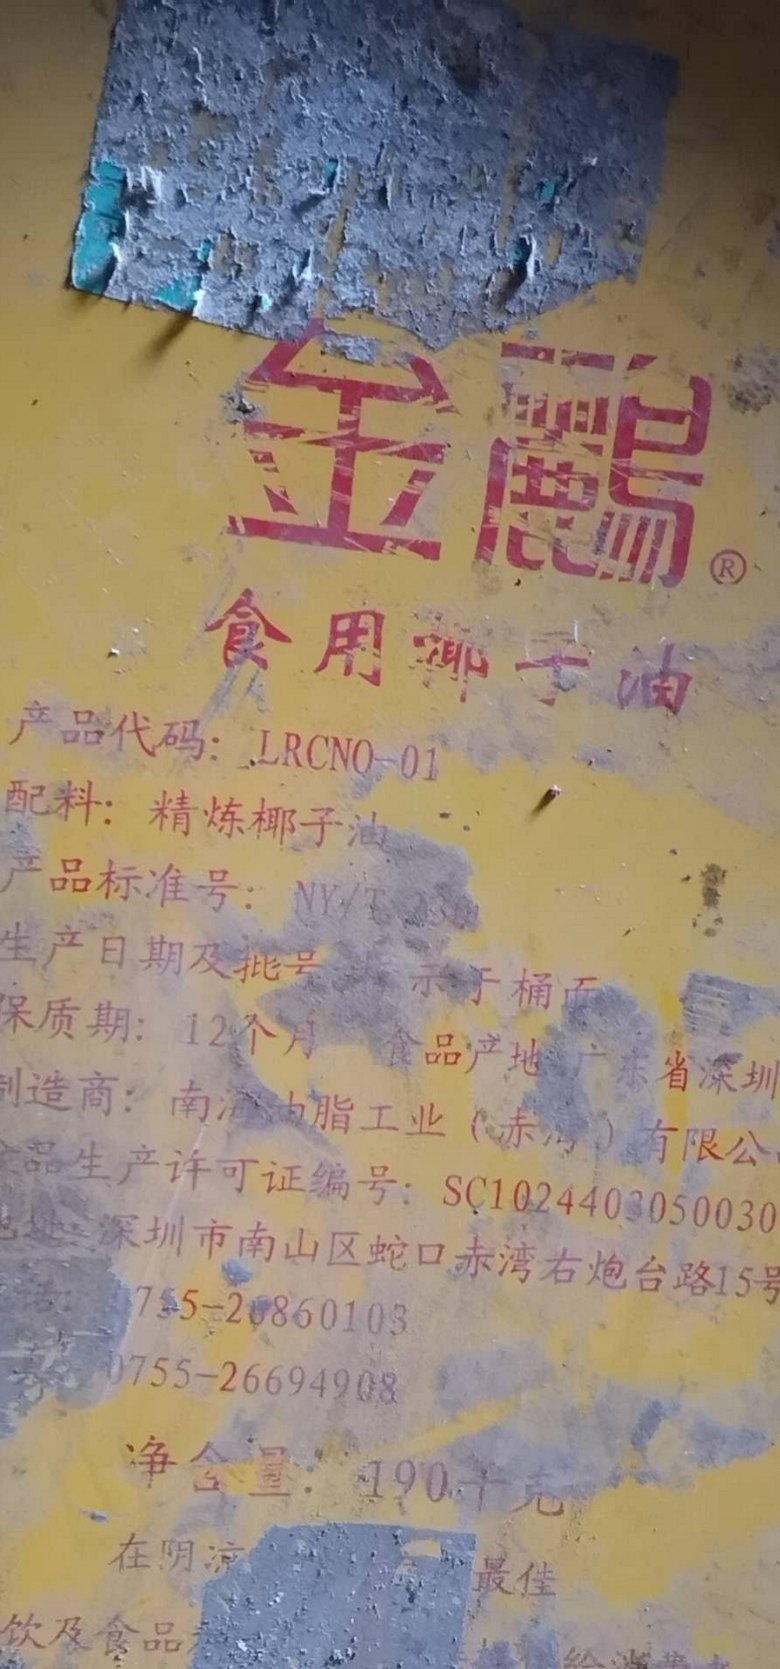 金鹂®
食用椰子油
产品代码：LRCNO-01
配料：精炼椰子油
产品标准号：NY/T 230
生产日期及批号 示于桶面
保质期：12个月 食品产地 广东省深圳
制造商：南海油脂工业（赤湾）有限公
食品生产许可证编号：SC1024403050030
地址：深圳市南山区蛇口赤湾右炮台路15号
0755-26860103
真：0755-26694908
净含量：190千克
在阴凉 最佳
饮及食品